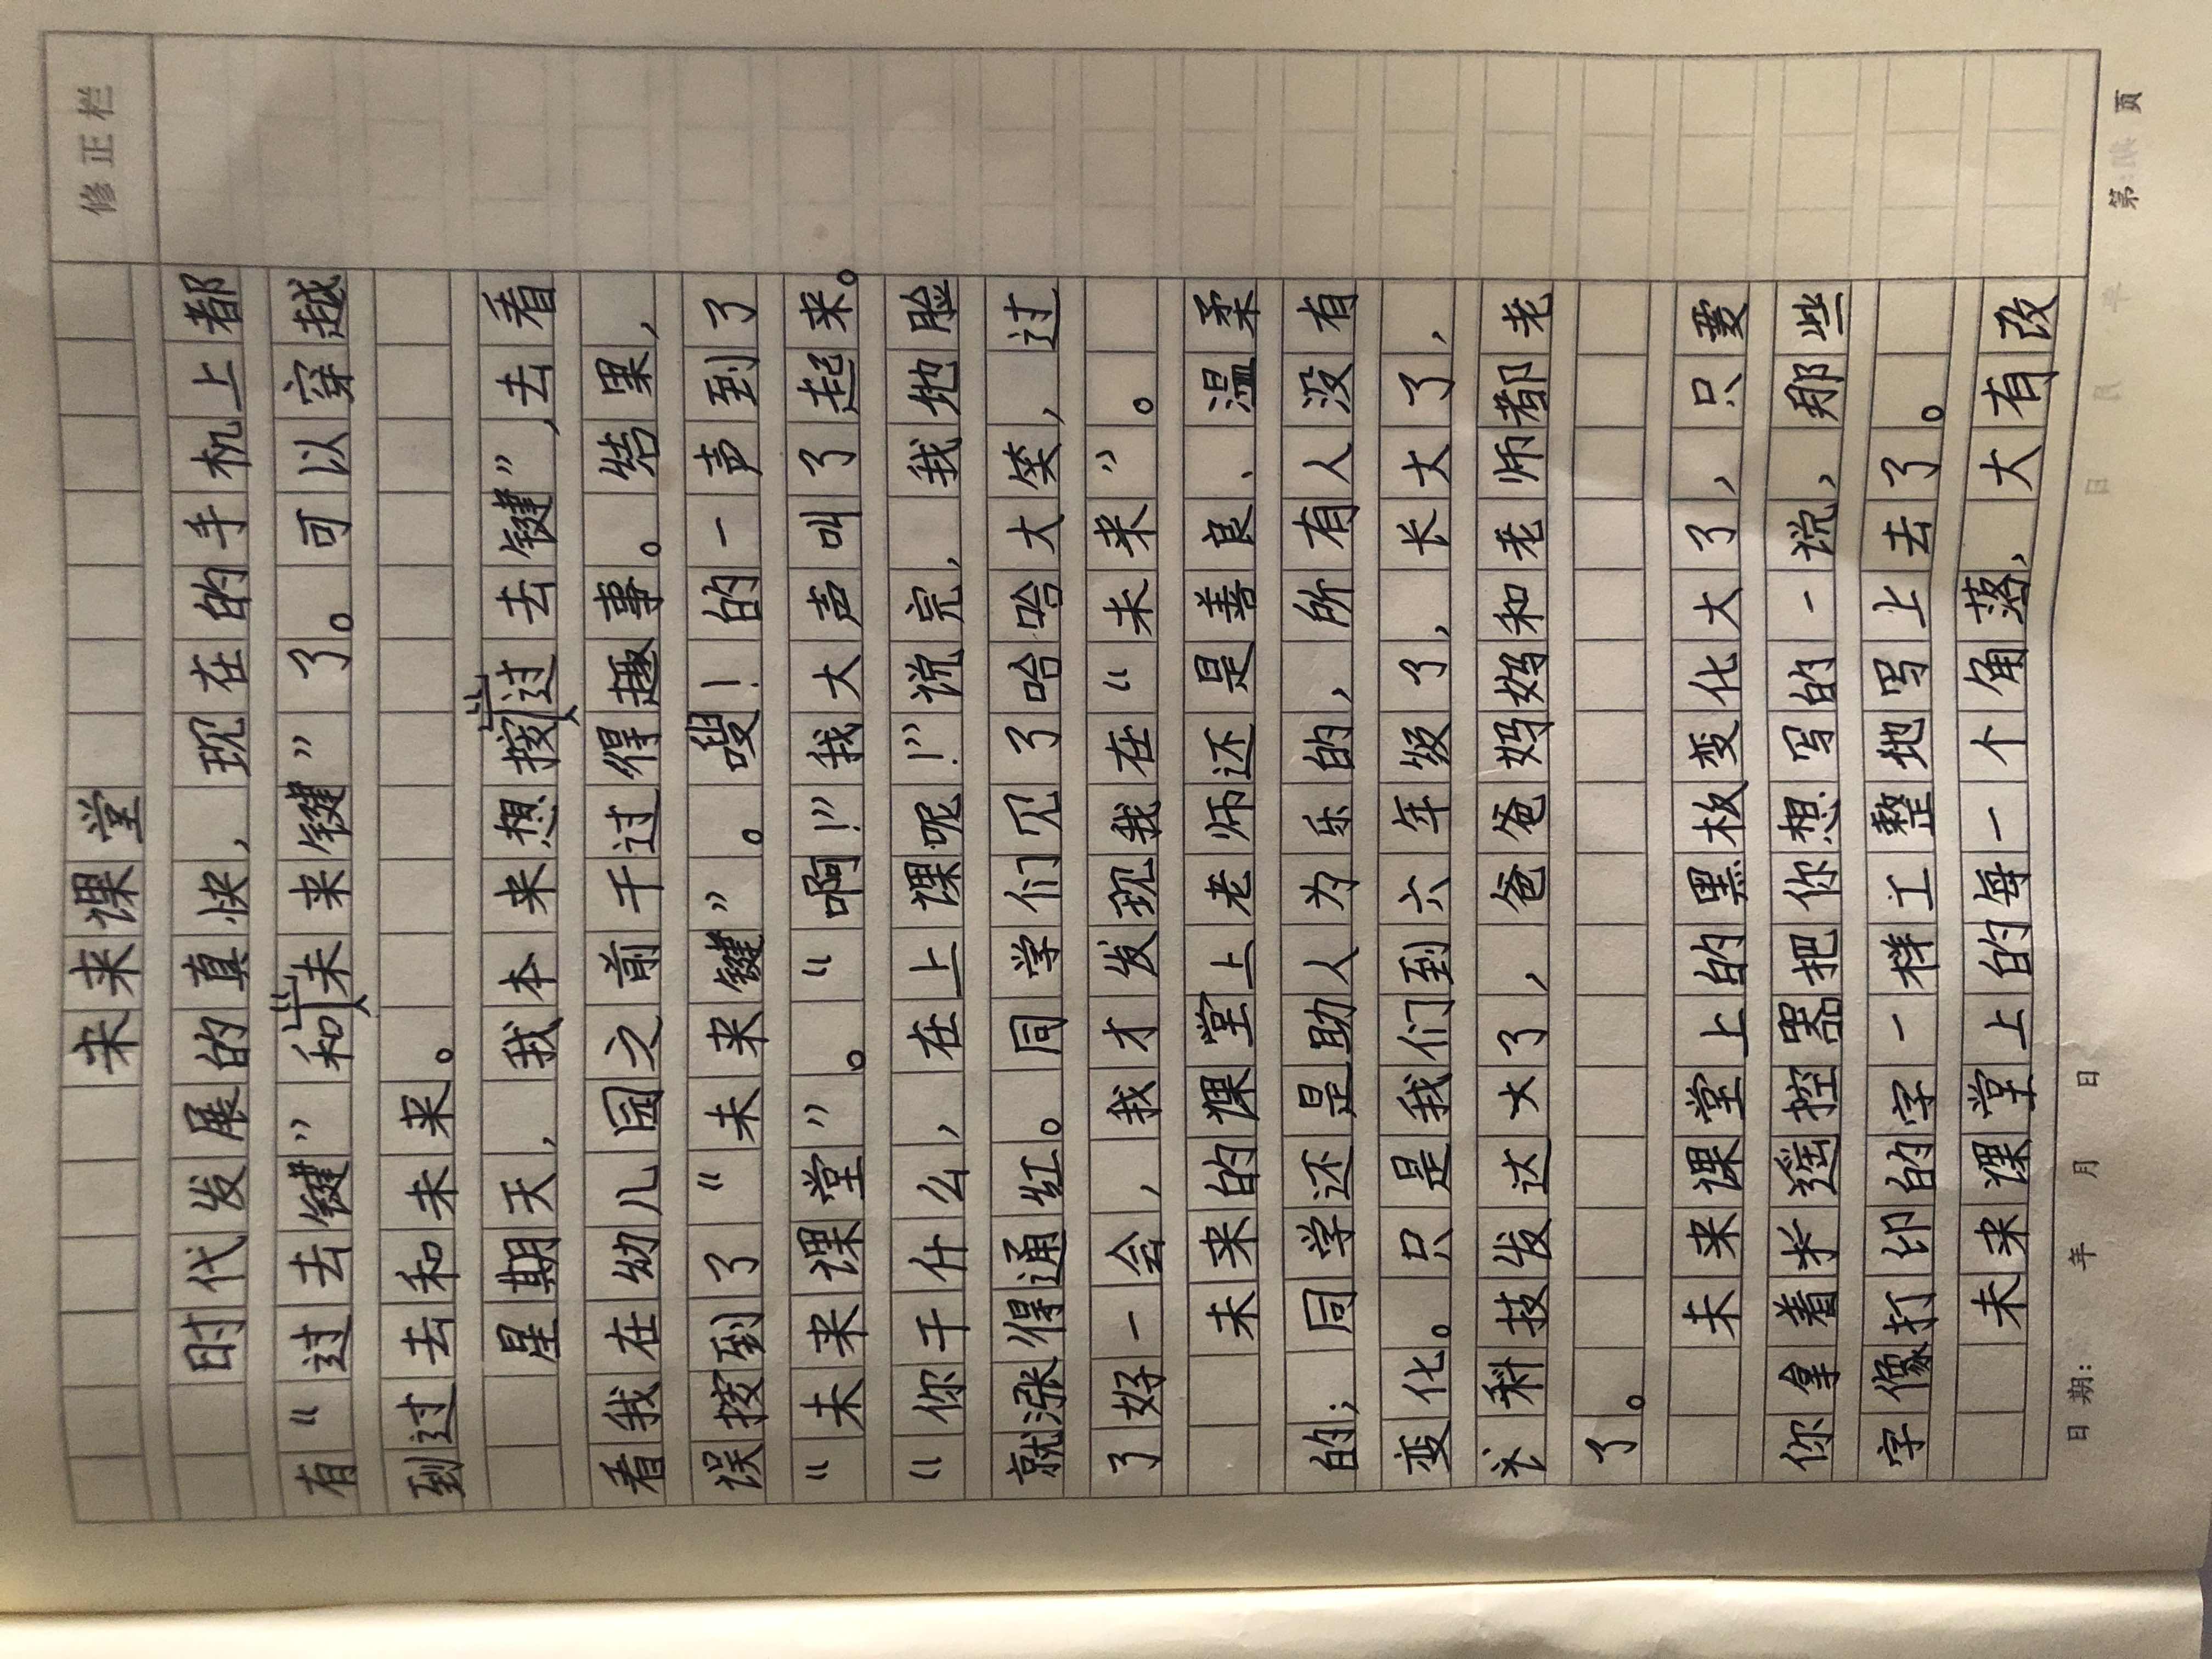 修正栏
来来课堂
时代发展的真快，现在的手机上都
有“过去键”和“未来键”了。可以穿越
到过去和未来。
星期天，我本来想按“过去键”，去看
看我在幼儿园之前干过得趣事。结果，
误按到了“未来键”。嗖！的一声到了
“未来课堂”。“啊！”我大声叫了起来。
“你干什么，在上课呢！”说完，我地脸
就涨得通红。同学们见了哈哈大笑，过
了好一会，我才发现我在“未来”。
未来的课堂上老师还是善良、温柔
的；同学还是助人为乐的，所有人没有
变化。只是我们到六年级了，长大了，
科技发达大了，爸爸妈妈和老师都老
了。
未来课堂上的黑板变化大了，只要
你拿着遥控器把你想写的一说，那些
字像打印的字一样工整地写上去了。
未来课堂上的每一个角落，大有改
日期： 年 月 日
第 页